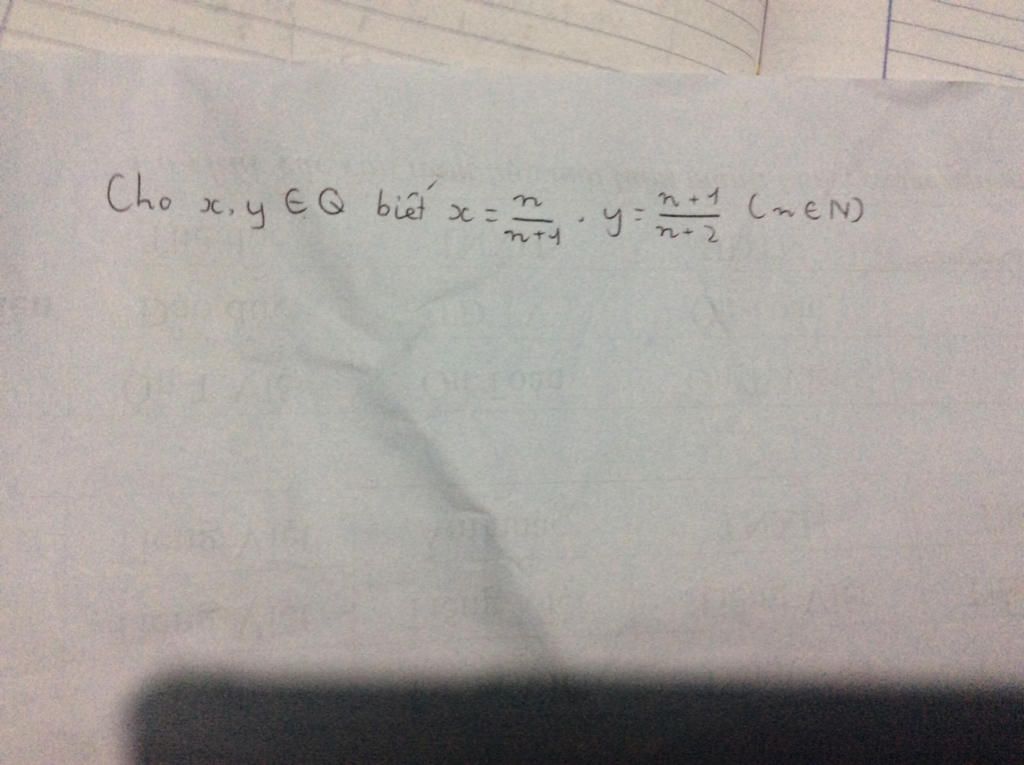 Cho x, y ∈ Q biết x = n/n+1 . y = n+1/n+2 (n ∈ N)